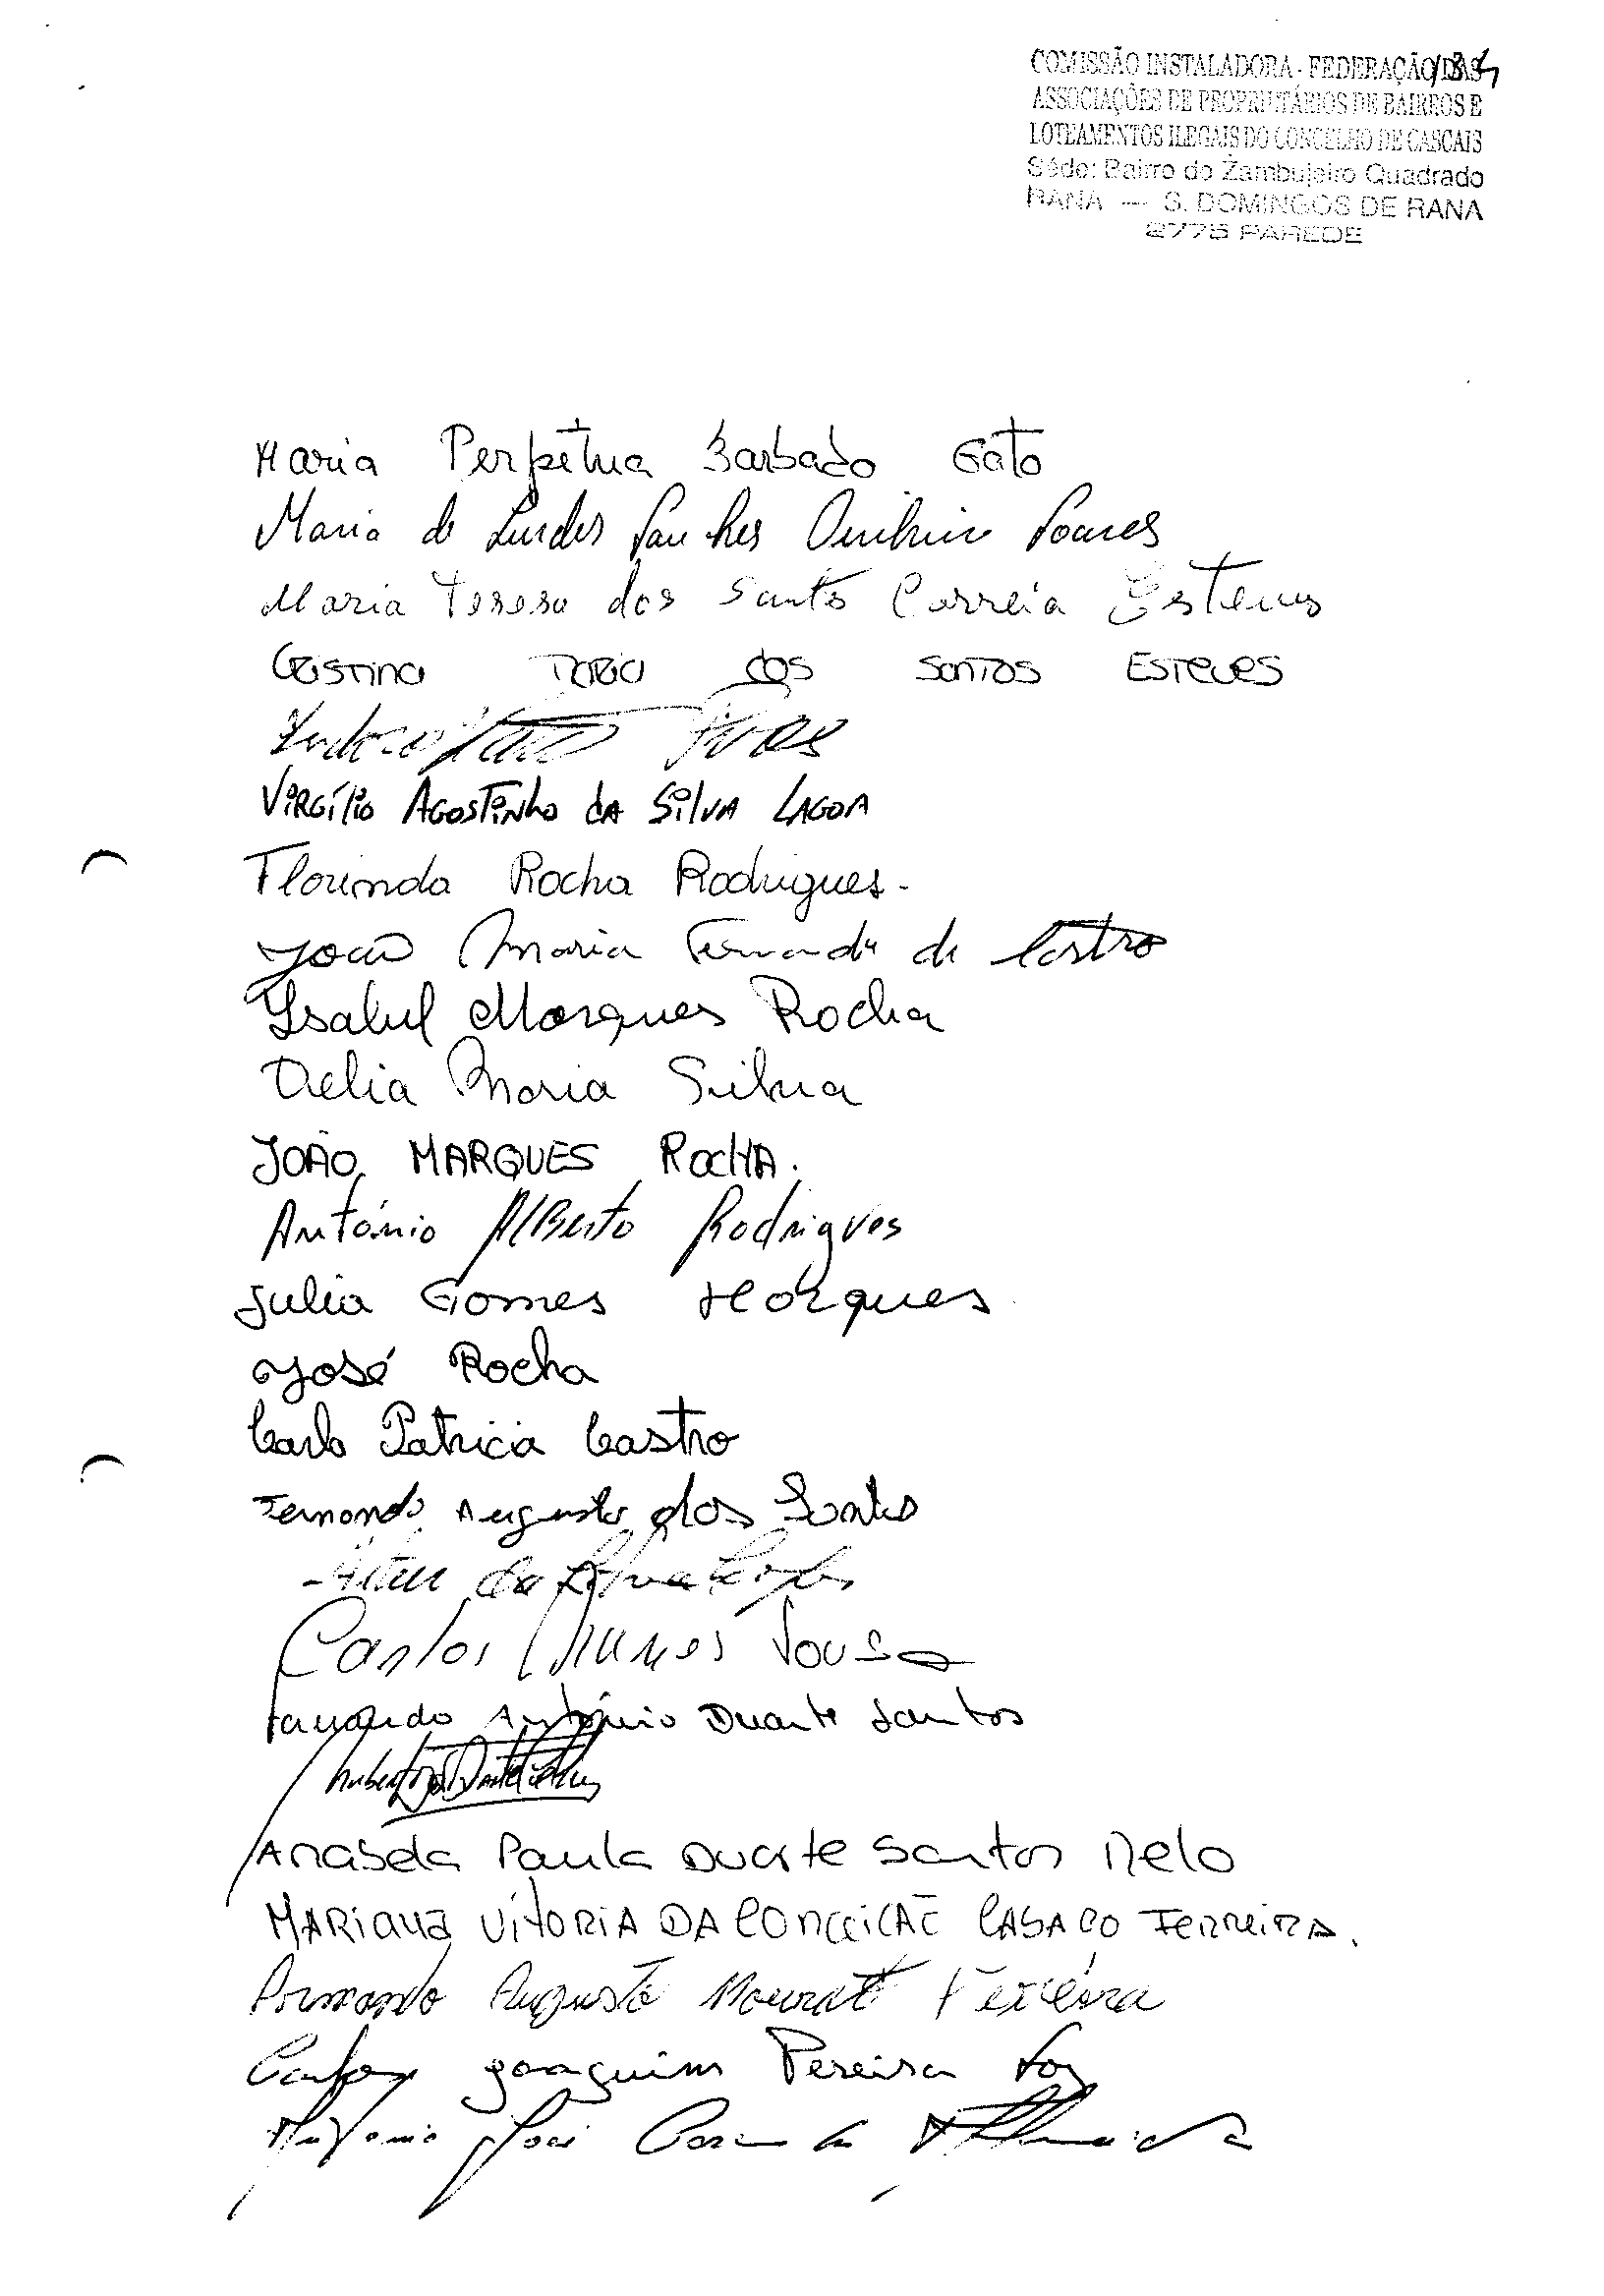 COMISSÃO INSTALADORA - FEDERAÇÃO DAS
ASSOCIAÇÕES DE PROPRIETÁRIOS DE BAIRROS E
LOTEAMENTOS ILEGAIS DO CONCELHO DE CASCAIS
Séde: Bairro do Zambujeiro Quadrado
RANA — S. DOMINGOS DE RANA
2775 PAREDE
Maria Perpétua Barbado Gato
Maria de Lurdes Sanches Soares
Maria Teresa dos Santos Correia Esteves
Cristina Maria dos Santos Esteves
Virgílio Agostinho da Silva Lagoa
Florinda Rocha Rodrigues.
João Maria Fernandes de Castro
Isabel Marques Rocha
Delia Maria Silva
João Marques Rocha.
António Alberto Rodrigues
Julia Gomes Marques
José Rocha
Carla Patricia Castro
Fernando Augusto dos Santos
da Silva
Carlos Nunes Sousa
Fernando António Duarte Santos
Anabela Paula Duarte Santos Melo
Mariana Vitoria da Conceição Casaco Ferreira.
Armando Augusto Mourato Ferreira
Carlos Joaquim Pereira
Antonio José Almeida